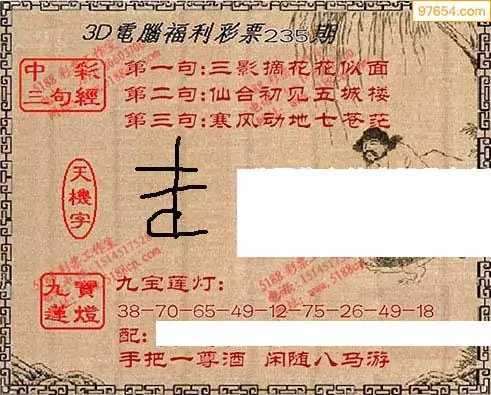 97654.com
3D電腦福利彩票235期
中彩
三句經
第一句:三影摘花花似面
第二句:仙台初见五城楼
第三句:寒风动地七苍茫
天機字
九寶
蓮燈
九宝莲灯:
38-70-65-49-12-75-26-49-18
配:
手把一尊酒 闲随八马游